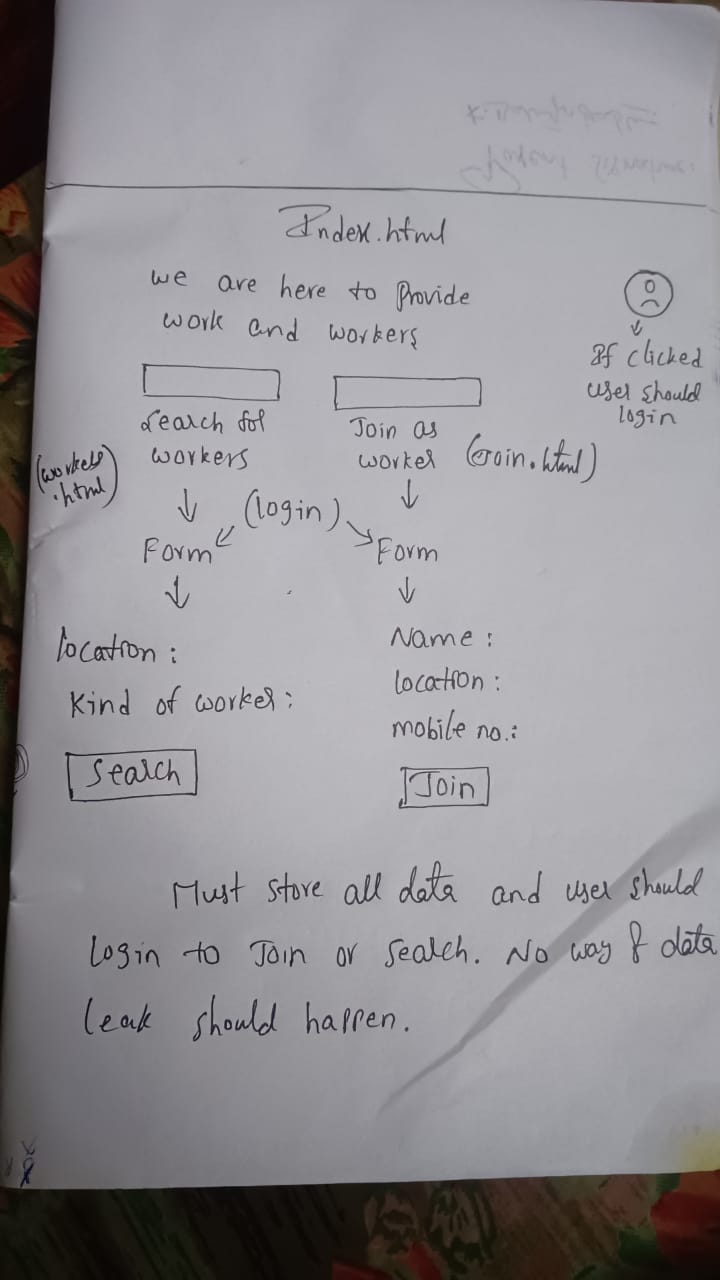 Index.html
we are here to Provide
work and workers
If clicked
user should
login
Search for
workers
(workers
.html)
Join as
worker
(Join.html)
(login)
Form
Form
location :
Kind of worker :
Search
Name :
location :
mobile no. :
Join
Must store all data and user should
Login to Join or Search. No way of data
leak should happen.